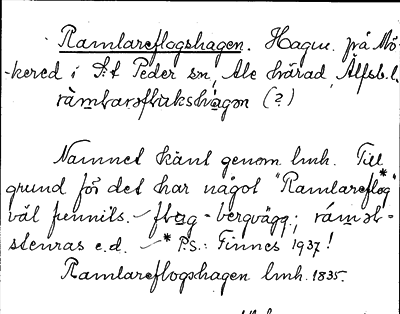 Ramlareflogshagen. Hagm. på Mö-
kered i S:t Peder sn, Ale härad, Älfsb. l.
ràmlarəflukshàgən (?)
Namnet känt genom lmh. Till
grund för det har något "Ramlareflog*"
väl funnits. – flog - bergvägg; ráməl-
stenras e.d. – * P.S.: Finnes 1937!
Ramlareflogshagen lmh. 1835.